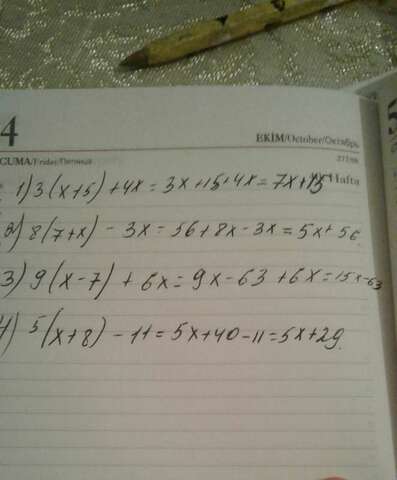 4
EKİM/October/Октябрь
CUMA/Friday/Пятница
277/88
Hafta
1) 3(x+5)+4x=3x+15+4x=7x+15
2) 8(7+x)-3x=56+8x-3x=5x+56
3) 9(x-7)+6x=9x-63+6x=15x-63
4) 5(x+8)-11=5x+40-11=5x+29.